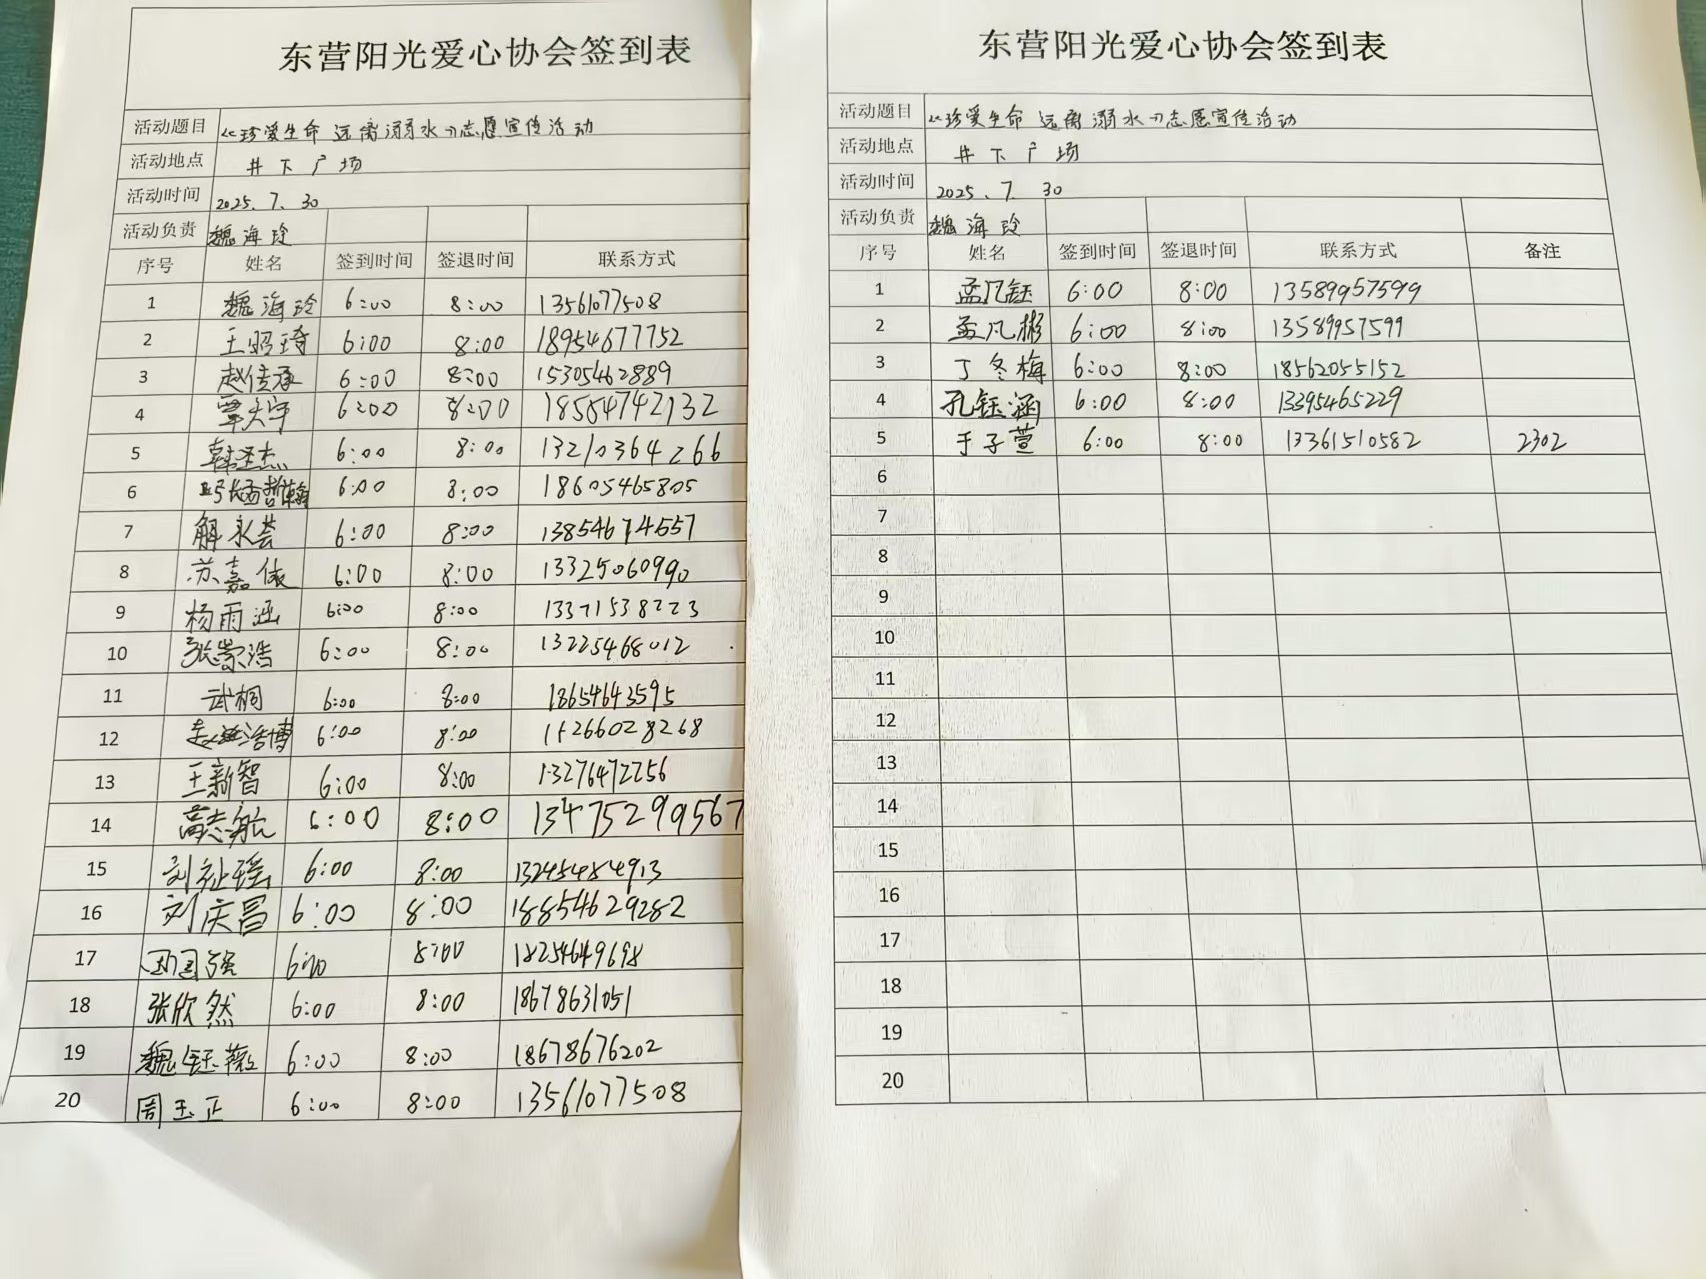 东营阳光爱心协会签到表
活动题目 《珍爱生命 远离溺水》志愿宣传活动
活动地点 井下广场
活动时间 2025.7.30
活动负责 魏海玲
序号 姓名 签到时间 签退时间 联系方式
1 魏海玲 6:00 8:00 13561077508
2 王昭琦 6:00 8:00 18954677752
3 赵传承 6:00 8:00 15305462889
4 覃天宇 6:00 8:00 18584742132
5 韩圣杰 6:00 8:00 13210364266
6 6:00 8:00 18605465805
7 解永芸 6:00 8:00 13854674557
8 苏嘉依 6:00 8:00 13325060990
9 杨雨涵 6:00 8:00 13371538223
10 张崇浩 6:00 8:00 13225468012
11 武桐 6:00 8:00 18654643595
12 6:00 8:00
13 王新智 6:00 8:00 13276472256
14 高志航 6:00 8:00 13475299567
15 刘祉瑶 6:00 8:00
16 刘庆昌 6:00 8:00 18854629282
17 6:00 8:00 18254649698
18 张欣然 6:00 8:00 18678631051
19 魏钰薇 6:00 8:00 18678676202
20 周玉正 6:00 8:00 13561077508
东营阳光爱心协会签到表
活动题目 《珍爱生命 远离溺水》志愿宣传活动
活动地点 井下广场
活动时间 2025.7.30
活动负责 魏海玲
序号 姓名 签到时间 签退时间 联系方式 备注
1 孟凡钰 6:00 8:00 13589957599
2 孟凡彬 6:00 8:00 13589957599
3 丁冬梅 6:00 8:00 18562055152
4 孔钰涵 6:00 8:00 13395465229
5 于子萱 6:00 8:00 13361510582 2302
6
7
8
9
10
11
12
13
14
15
16
17
18
19
20